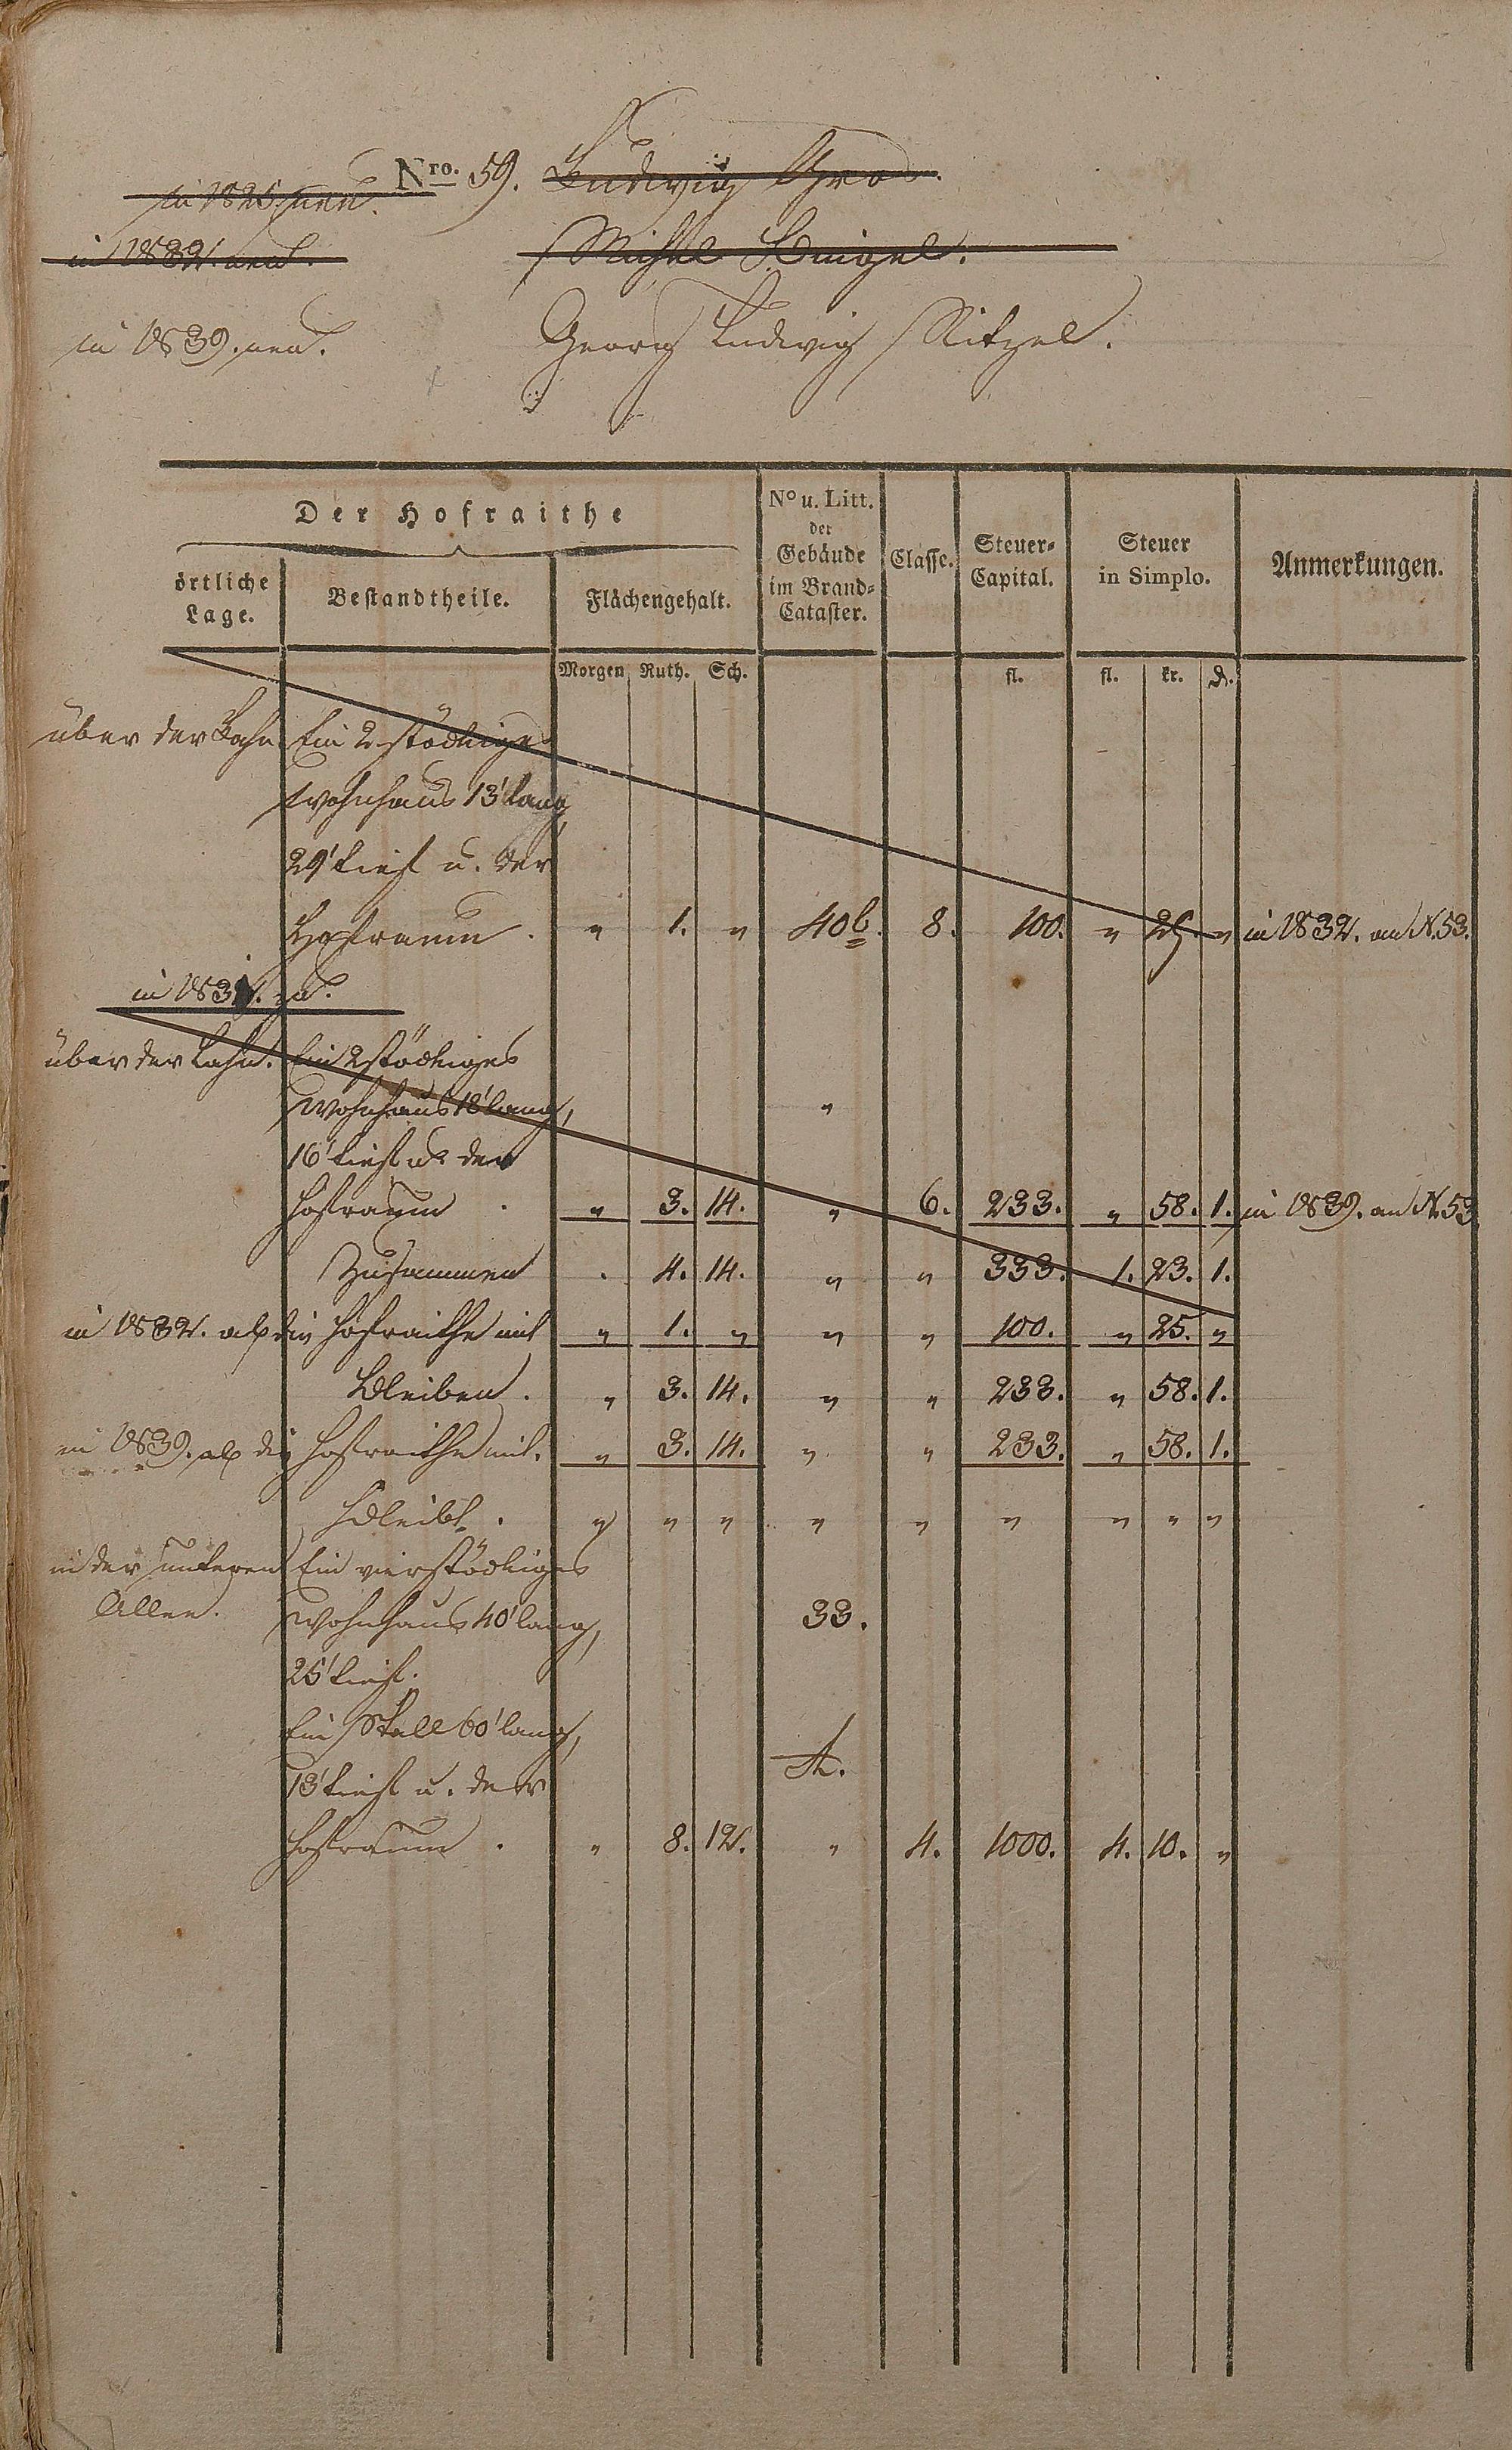 in 1825. neu. Nro. 59. Ludwig Gros.
in 1832. neu. Michel
in 1839. neu. Georg Ludwig Nitzel.
Der Hofraithe
örtliche Lage.
Bestandtheile.
Flächengehalt.
Morgen Ruth. Sch.
No u. Litt. der Gebäude im Brand-Cataster.
Classe.
Steuer-Capital.
fl.
Steuer in Simplo.
fl. kr. d.
Anmerkungen.
über der Lahn Ein 2 stöckiges
Wohnhaus 13' lang,
29' tief u. der
Hofraum . " 1. " 40b. 8. 100. " 25. " in 1832. an N. 53.
in 1831. zu.
über der Lahn. Ein 2stöckiges
Wohnhaus 18' lang, "
16' tief u. der
Hofraum . " 3. 14. " 6. 233. " 58. 1. in 1839. an N. 53.
Zusammen . 4. 14. " " 333. 1. 23. 1.
in 1832. ab die Hofraithe mit " 1. " " " 100. " 25. "
Bleiben . " 3. 14. " " 233. " 58. 1.
in 1839. ab die Hofraithe mit. " 3. 14. " " 233. " 58. 1.
bleibt . " " " " " " " " "
in der unteren Ein vierstöckiges
Allee. Wohnhaus 40' lang, 33.
25' tief.
Ein Stall 60' lang,
13' tief u. der A.
Hofraum . " 8. 12. " 4. 1000. 4. 10. "